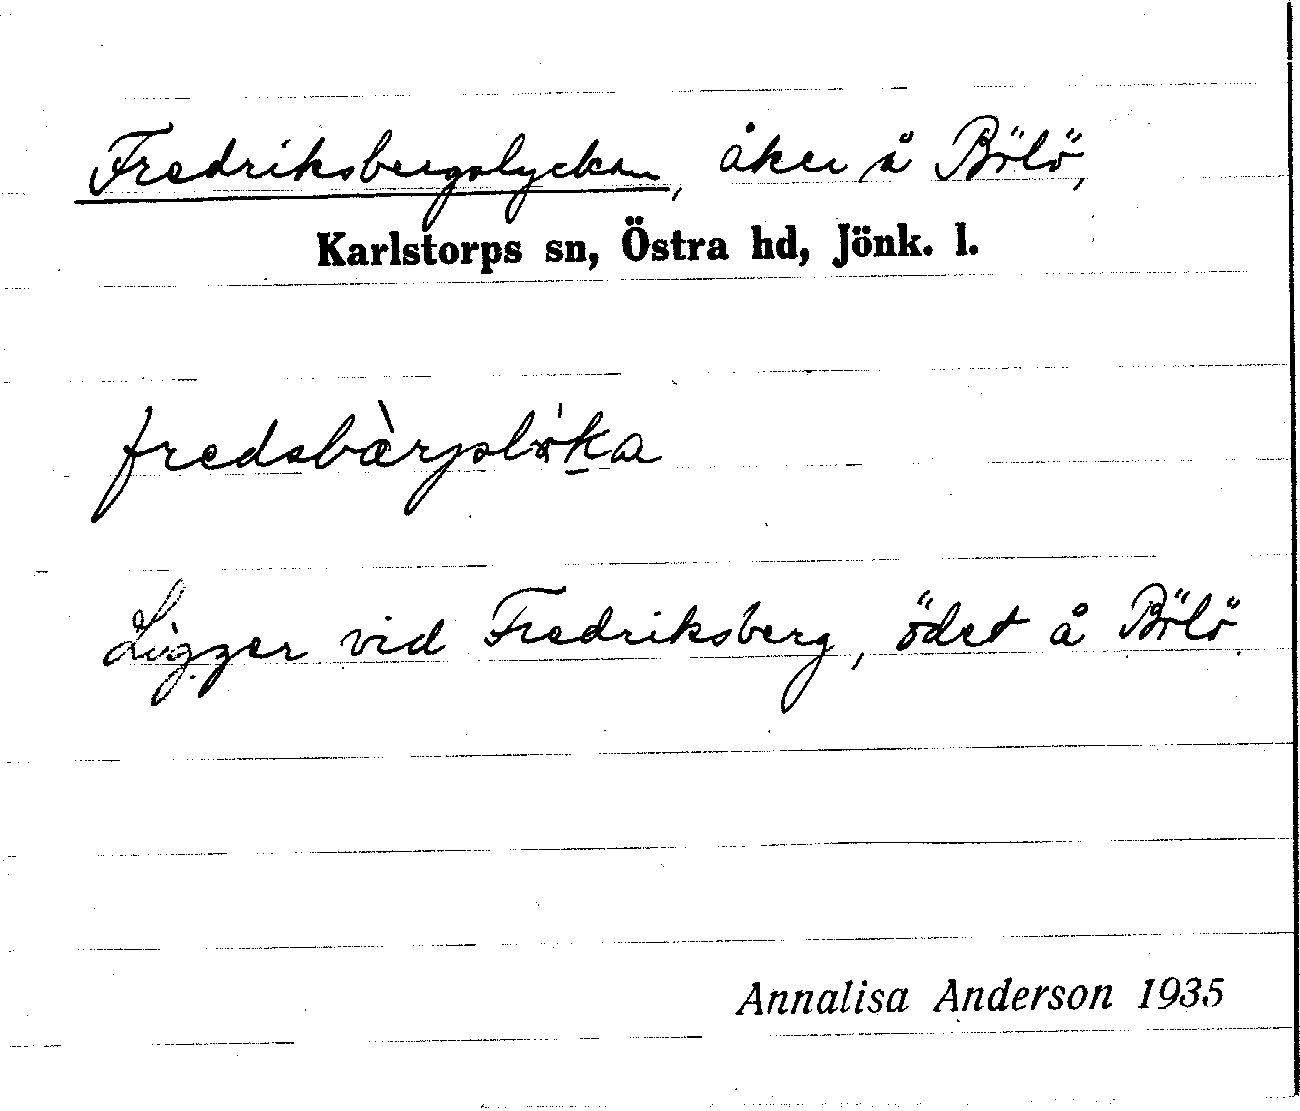 Fredriksbergslyckan, åker å Bölö,
Karlstorps sn, Östra hd, Jönk. l.
fredsbæ̀rjslö́ka
Ligger vid Fredriksberg, ödet å Bölö.
Annalisa Anderson 1935